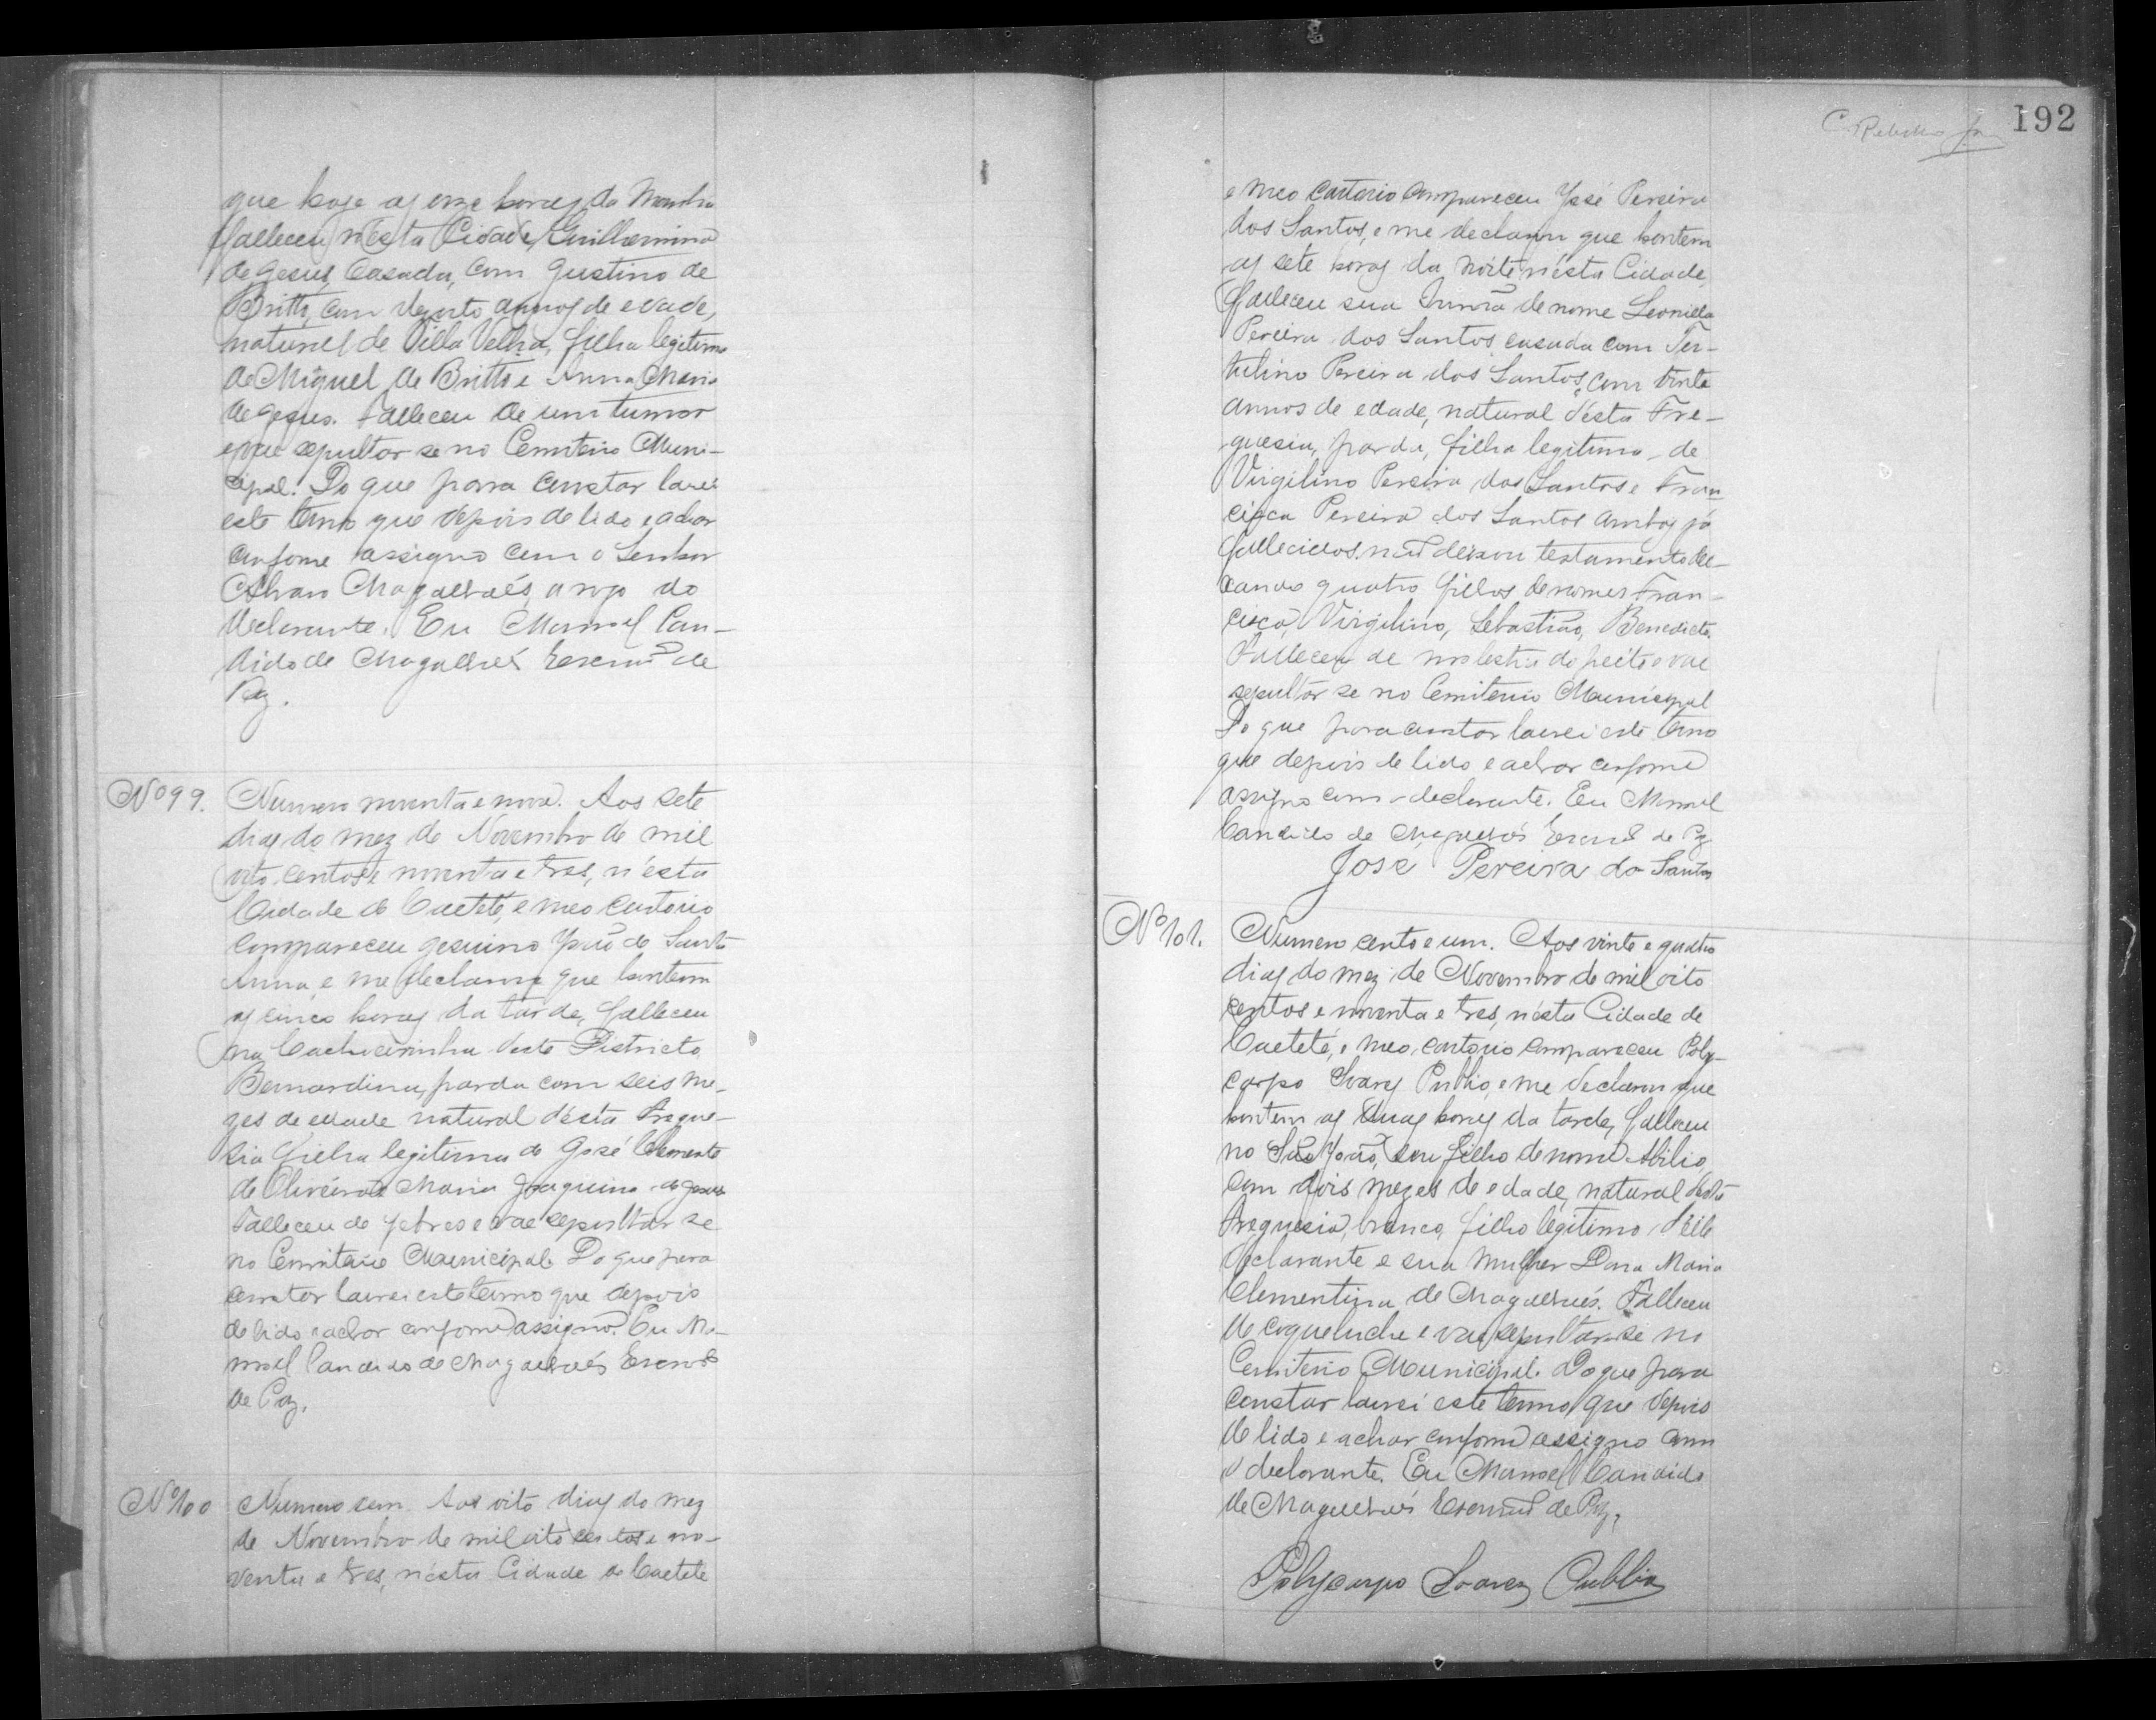 que hoje as onze horas da Manhã
falleceu n'esta Cidade Guilhermina
de Jesus, Casada, com Justino de
Britto, com vinte annos de edade,
natural de Villa Velha, filha legitima
de Miguel de Britto e Anna Maria
de Jesus. Falleceu de um tumor
e vae sepultar se no Cemiterio Muni-
cipal. Do que para constar lavrei
este termo que depois de lido e achar
conforme assigno com o Senhor
Alvaro Magalhães, a rogo do
declarante. Eu Manoel Can-
dido de Magalhães Escrivão de
Paz.
Nº 99.
Numero noventa e nove. Aos sete
dias do mez de Novembro de mil
oito centos e noventa e tres, n'esta
Cidade de Caeteté, e meo Cartorio
compareceu Jesuino José de Santa
Anna, e me declarou que hontem
as cinco horas da tarde, falleceu
na Cachoeirinha deste Districto
Bernardina, parda com seis me-
zes de edade natural desta Fregue-
sia filha legitima de José Clemente
de Oliveira e Maria Joaquina de Jesus
Falleceu de febres e vae sepultar se
no Cemiterio Municipal. Do que para
constar lavrei este termo que depois
de lido e achar conforme assigno. Eu Ma-
noel Candido de Magalhães Escrivão
de Paz.
Nº 100
Numero cem. Aos oito dias do mez
de Novembro de mil oito centos e no-
venta e tres, n'esta Cidade de Caeteté
192
e meo Cartorio compareceu José Pereira
dos Santos, e me declarou que hontem
as sete horas da noite n'esta Cidade,
falleceu sua Irmã de nome Leonilla
Pereira dos Santos, casada com Ter-
tulino Pereira dos Santos, com vinte
annos de edade, natural d'esta Fre-
guesia, parda, filha legitima de
Virgilino Pereira dos Santos e Fran
cisca Pereira dos Santos ambos já
fallecidos. não deixou testamento dei-
xando quatro filhos de nomes Fran-
cisco, Virgilino, Sebastião, Benedicto.
Falleceu de molestia do peito e vae
sepultar se no Cemiterio Municipal
Do que para constar lavrei este termo
que depois de lido e achar conforme
assigno com o declarante. Eu Manoel
Candido de Magalhães Escrivão de Paz
José Pereira dos Santos
Nº 101.
Numero cento e um. Aos vinte e quatro
dias do mez de Novembro de mil oito
centos e noventa e tres, n'esta Cidade de
Caeteté, e meo, cartorio compareceu Poly-
carpo Soares Publio, e me declarou que
hontem as duas horas da tarde, falleceu
no São João, seu filho de nome Abilio,
com dois mezes de edade, natural desta
Freguesia, branco, filho legitimo d'elle
declarante e sua mulher Dona Maria
Clementina de Magalhães. Falleceu
de coqueluche e vae sepultar-se no
Cemiterio Municipal. Do que para
constar lavrei este termo que depois
de lido e achar conforme assigno com
o declarante. Eu Manoel Candido
de Magalhães Escrivão de Paz.
Polycarpo Soares Publio